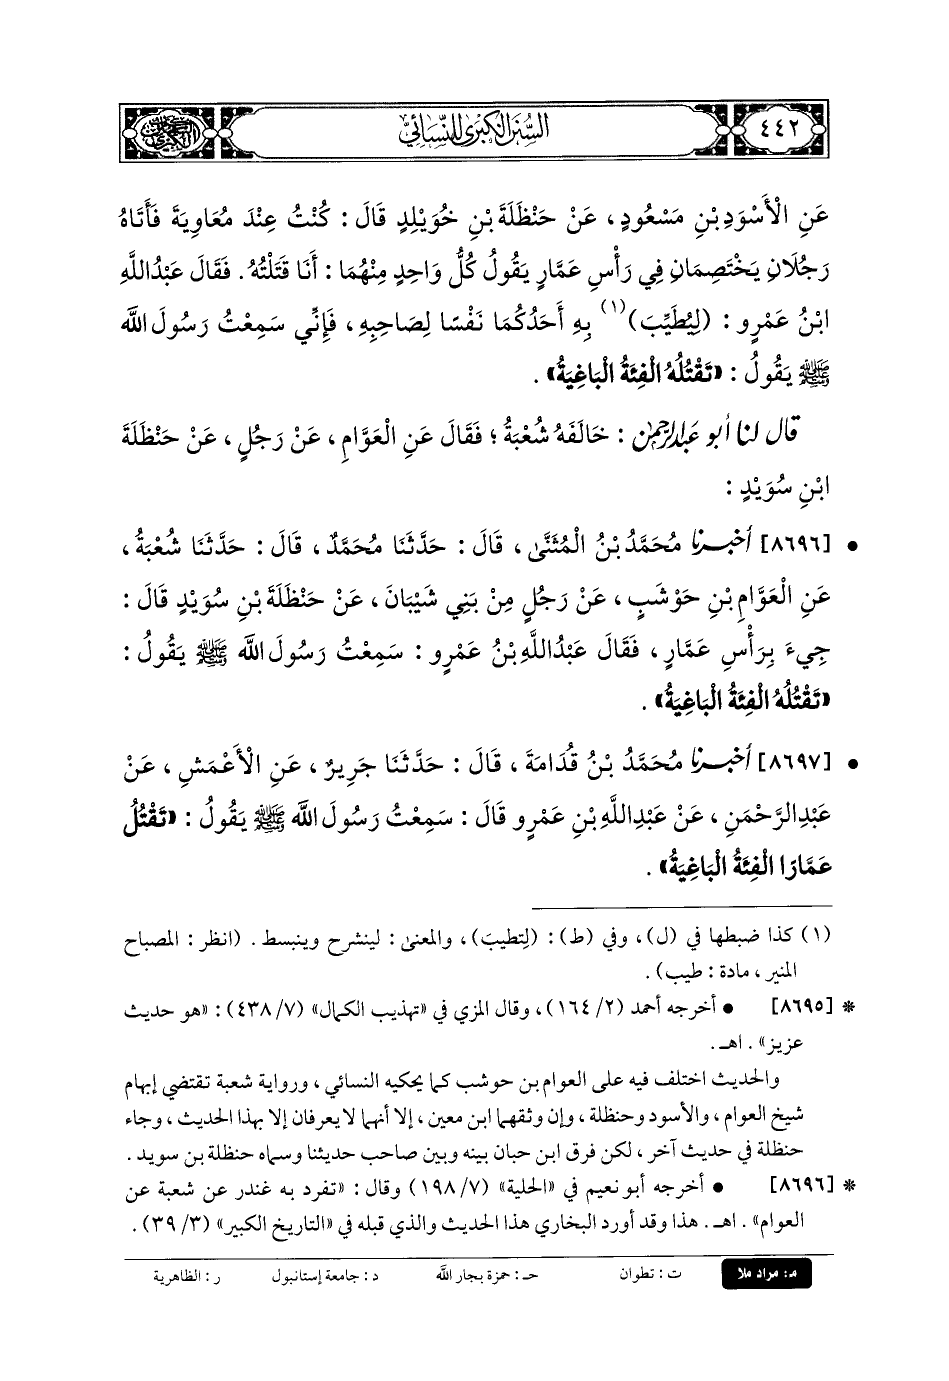 ٤٤٢
السنن الكبرى للنسائي
عَنِ الْأَسْوَدِ بْنِ مَسْعُودٍ ، عَنْ حَنْظَلَةَ بْنِ خُوَيْلِدٍ قَالَ : كُنْتُ عِنْدَ مُعَاوِيَةَ فَأَتَاهُ
رَجُلَانِ يَخْتَصِمَانِ فِي رَأْسِ عَمَّارٍ يَقُولُ كُلُّ وَاحِدٍ مِنْهُمَا : أَنَا قَتَلْتُهُ. فَقَالَ عَبْدُاللَّهِ
ابْنُ عَمْرٍو : (لِيُطَيِّبَ)(١) بِهِ أَحَدُكُمَا نَفْسًا لِصَاحِبِهِ ، فَإِنِّي سَمِعْتُ رَسُولَ اللَّه
ﷺ يَقُولُ : «تَقْتُلُهُ الْفِئَةُ الْبَاغِيَةُ» .
قال لنا أبو عبدالرحمن : خَالَفَهُ شُعْبَةُ ؛ فَقَالَ عَنِ الْعَوَّامِ ، عَنْ رَجُلٍ ، عَنْ حَنْظَلَةَ
ابْنِ سُوَيْدٍ :
• [٨٦٩٦] أخبرنا مُحَمَّدُ بْنُ الْمُثَنَّى ، قَالَ : حَدَّثَنَا مُحَمَّدٌ ، قَالَ : حَدَّثَنَا شُعْبَةُ ،
عَنِ الْعَوَّامِ بْنِ حَوْشَبٍ ، عَنْ رَجُلٍ مِنْ بَنِي شَيْبَانَ ، عَنْ حَنْظَلَةَ بْنِ سُوَيْدٍ قَالَ :
جِيءَ بِرَأْسِ عَمَّارٍ ، فَقَالَ عَبْدُاللَّهِ بْنُ عَمْرٍو : سَمِعْتُ رَسُولَ اللَّه ﷺ يَقُولُ :
«تَقْتُلُهُ الْفِئَةُ الْبَاغِيَةُ» .
• [٨٦٩٧] أخبرنا مُحَمَّدُ بْنُ قُدَامَةَ ، قَالَ : حَدَّثَنَا جَرِيرٌ ، عَنِ الْأَعْمَشِ ، عَنْ
عَبْدِالرَّحْمَنِ ، عَنْ عَبْدِاللَّهِ بْنِ عَمْرٍو قَالَ : سَمِعْتُ رَسُولَ اللَّه ﷺ يَقُولُ : «تَقْتُلُ
عَمَّارًا الْفِئَةُ الْبَاغِيَةُ» .
(١) كذا ضبطها في (ل)، وفي (ط): (لِتَطيبَ)، والمعنى: لينشرح وينبسط . (انظر : المصباح
المنير ، مادة : طيب) .
* [٨٦٩٥] • أخرجه أحمد (٢/ ١٦٤)، وقال المزي في «تهذيب الكمال» (٧/ ٤٣٨) : «هو حديث
عزيز» . اهـ .
والحديث اختلف فيه على العوام بن حوشب كما يحكيه النسائي ، ورواية شعبة تقتضي إبهام
شيخ العوام ، والأسود وحنظلة ، وإن وثقهما ابن معين ، إلا أنهما لا يعرفان إلا بهذا الحديث ، وجاء
حنظلة في حديث آخر ، لكن فرق ابن حبان بينه وبين صاحب حديثنا وسماه حنظلة بن سويد .
* [٨٦٩٦] • أخرجه أبو نعيم في «الحلية» (٧/ ١٩٨) وقال : «تفرد به غندر عن شعبة عن
العوام» . اهـ. هذا وقد أورد البخاري هذا الحديث والذي قبله في «التاريخ الكبير» (٣/ ٣٩) .
م: مراد ملا ت : تطوان حـ : حمزة بجار اللَّه د : جامعة إستانبول ر : الظاهرية